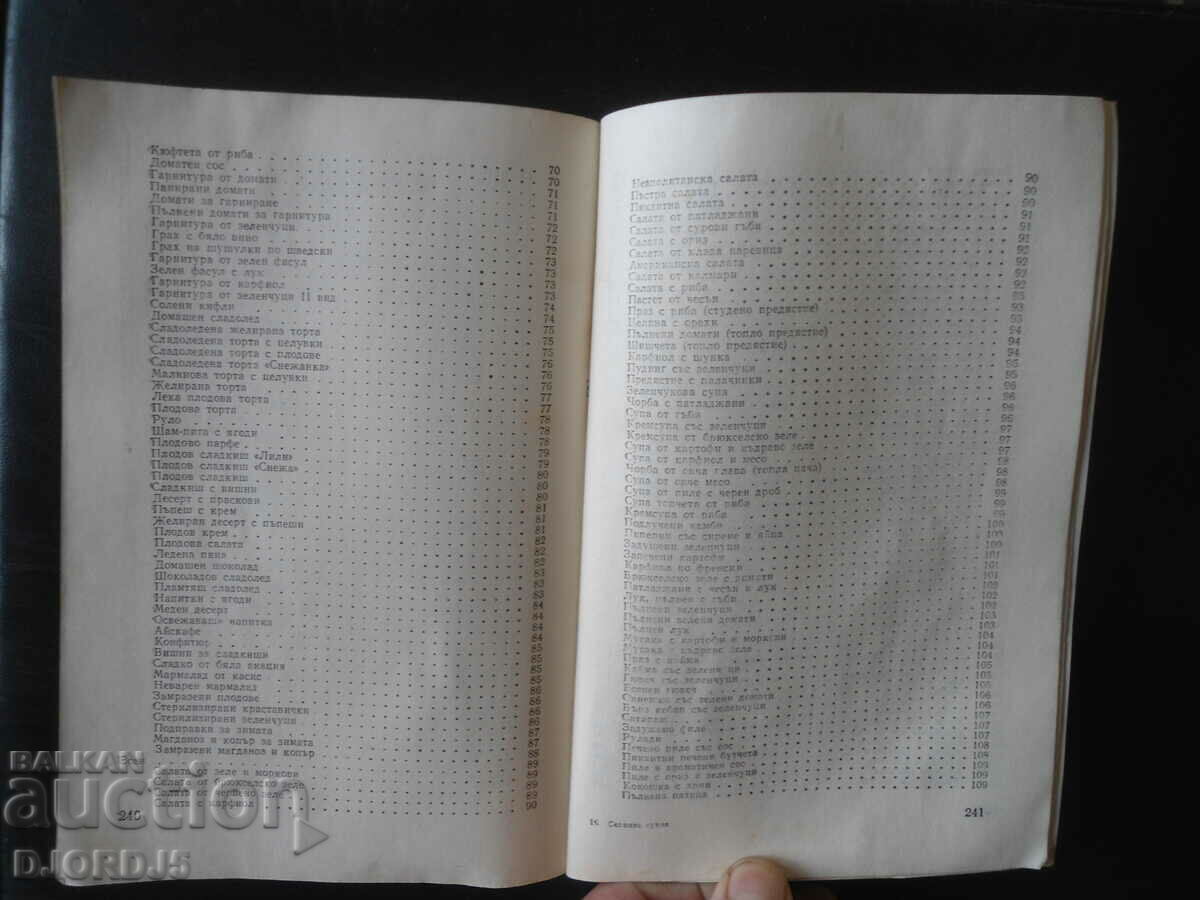 Кюфтета от риба 70
Доматен сос 70
Гарнитура от домати 71
Панирани домати 71
Домати за гарниране 71
Пълнени домати за гарнитура 72
Гарнитура от зеленчуци 72
Грах с бяло вино 72
Грах на шушулки по шведски 73
Гарнитура от зелен фасул 73
Зелен фасул с лук 73
Гарнитура от карфиол 73
Гарнитура от зеленчуци II вид 74
Солени кифли 74
Домашен сладолед 75
Сладоледена желирана торта 75
Сладоледена торта с целувки 75
Сладоледена торта с плодове 76
Сладоледена торта «Снежанка» 76
Малинова торта с целувки 76
Желирана торта 77
Лека плодова торта 77
Плодова торта 78
Руло 78
Шам-пита с ягоди 78
Плодово парфе 79
Плодов сладкиш «Лили» 79
Плодов сладкиш «Снежа» 80
Плодов сладкиш 80
Сладкиш с вишни 80
Десерт с праскови 81
Пъпеш с крем 81
Желиран десерт с пъпеши 81
Плодов крем 82
Плодова салата 82
Ледена пяна 82
Домашен шоколад 83
Шоколадов сладолед 83
Пламтящ сладолед 83
Напитки с ягоди 84
Меден десерт 84
„Освежаващ“ напитка 84
Айскафе 84
Конфитюр 85
Вишни за сладкиши 85
Сладко от бяла акация 85
Мармалад от касис 86
Неварен мармалад 86
Замразени плодове 86
Стерилизирани краставички 86
Стерилизирани зеленчуци 87
Подправки за зимата 87
Магданоз и копър за зимата 88
Замразени магданоз и копър 88
Есен
Салата от зеле и моркови 89
Салата от брюкселско зеле 89
Салата от червено зеле 89
Салата с карфиол 90
240
Неаполитанска салата 90
Пъстра салата 90
Пикантна салата 90
Салата от патладжани 91
Салата от сурови гъби 91
Салата с ориз 91
Салата от млада царевица 92
Американска салата 92
Салата от калмари 92
Салата с риба 92
Пастет от чесън 93
Праз с риба (студено предястие) 93
Целина с орехи 93
Пълнени домати (топло предястие) 94
Шишчета (топло предястие) 94
Карфиол с шунка 94
Пудинг със зеленчуци 95
Предястие с палачинки 95
Зеленчукова супа 96
Чорба с патладжани 96
Супа от гъби 96
Кремсупа със зеленчуци 97
Кремсупа от брюкселско зеле 97
Супа от картофи и къдраво зеле 97
Супа от карфиол и месо 98
Чорба от овча глава (топла пача) 98
Супа от овче месо 98
Супа от пиле с черен дроб 99
Супа топчета от риба 99
Кремсупа от риба 99
Подлучени камби 100
Пиперки със сирене и яйца 100
Задушени зеленчуци 100
Запечени картофи 101
Карфиол по френски 101
Брюкселско зеле с домати 101
Патладжани с чесън и лук 102
Лук, пълнен с гъби 102
Пълнени зеленчуци 102
Пълнени зелени домати 103
Пълнен лук 103
Мусака с картофи и моркови 104
Мусака с къдраво зеле 104
Праз с кайма 104
Кайма със зеленчуци 105
Гювеч със зеленчуци 105
Есенен гювеч 105
Свинско със зелени домати 106
Бърз кебап със зеленчуци 106
Сатараш 107
Задушено филе 107
Рулади 107
Печено пиле със сос 108
Пикантни печени бутчета 108
Пиле в ароматичен сос 109
Пиле с ориз и зеленчуци 109
Кокошка с лочи 109
Пълнена патица
16 Сезонна кухня
241
BALKAN
auction
DJORDJ5